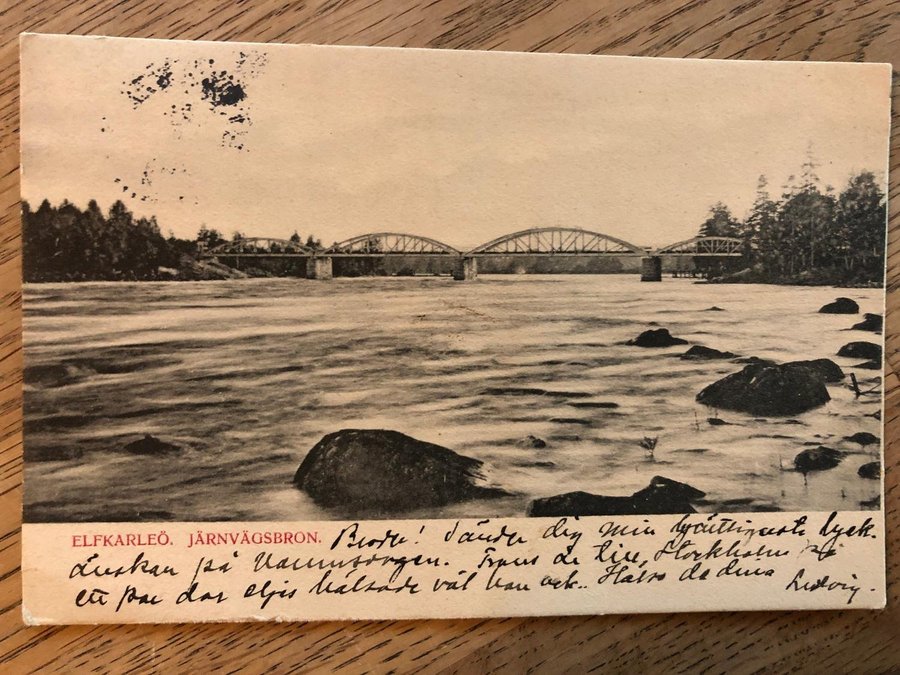 ELFKARLEÖ. JÄRNVÄGSBRON. Broder! Sänder dig min hjärtligaste lyck-
önskan på Namnsdagen. Frans de Stockholm
ett par dar eljes hälsade väl han ock. Hälsa de dina Ludvig.